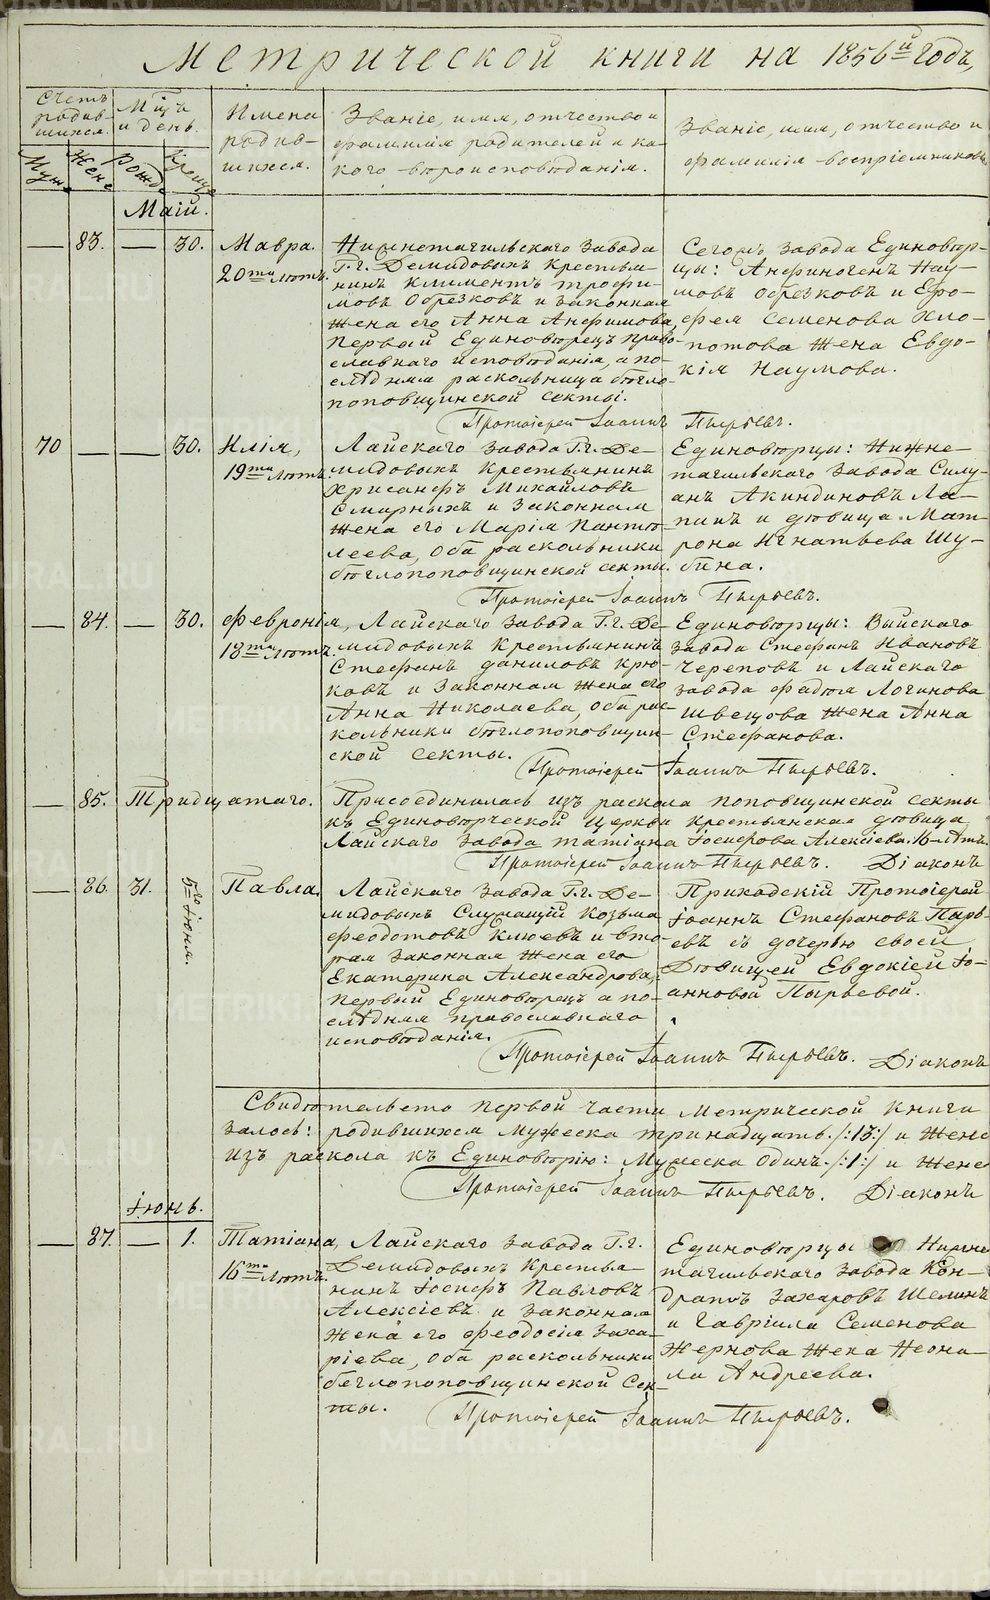 Метрической книги на 1856й Годъ,
Счетъ родив-шихся.
Мсца и день.
Имена родив-шихся.
Званіе, имя, отчество и фамилія родителей и ка-кого вѣроисповѣданія.
Званіе, имя, отчество и фамилія воспріемниковъ
Муж
Жене
Рожд
Креще
Маій.
— 83. — 30. Мавра.
20ти лѣтъ.
Нижнетагильскаго завода
Г.г. Демидовыхъ крестья-
нинъ Климентъ Трофи-
мовъ Обрезковъ и законная
жена его Анна Анфимова,
первый Единовѣрецъ Право-
славнаго исповѣданія, а по-
слѣдняя раскольница бѣгло-
поповщинской секты.
Сегожъ завода Единовѣр-
цы: Анфиногенъ Нау-
мовъ Обрезковъ и Еро-
фея Семенова Хло-
потова жена Евдо-
кія Наумова.
Протоіерей Іоаннъ Пырьевъ.
70 — — 30. Илія,
19ти лѣтъ.
Лайскаго завода Г.г. Де-
мидовыхъ крестьянинъ
Хрисанфъ Михайловъ
Смирныхъ и законная
жена его Марія Панте-
леева, оба раскольники
бѣглопоповщинской секты.
Единовѣрцы: Нижне-
тагильскаго завода Силу-
анъ Акиндиновъ Ла-
пинъ и дѣвица Мат-
рона Игнатьева Шу-
бина.
Протоіерей Іоаннъ Пырьевъ.
— 84. — 30. Февронія,
18ти лѣтъ.
Лайскаго завода Г.г. Де-
мидовыхъ крестьянинъ
Стефанъ Даниловъ Крю-
ковъ и законная жена его
Анна Николаева, оба рас-
кольники бѣглопоповщин-
ской секты.
Единовѣрцы: Выйскаго
завода Стефанъ Ивановъ
Череповъ и Лайскаго
завода Фадѣя Логинова
Швецова жена Анна
Стефанова.
Протоіерей Іоаннъ Пырьевъ.
— 85. Тридцатаго.
Присоединилась изъ раскола поповщинской секты
къ Единовѣрческой Церкви крестьянская дѣвица
Лайскаго завода Татіана Іосифова Алексіева 16 лѣтъ.
Протоіерей Іоаннъ Пырьевъ. Діаконъ
— 86. 31. 5го Іюня. Павла.
Лайскаго завода Г.г. Де-
мидовыхъ Служащій Козьма
Феодотовъ Клюевъ и вто-
рая законная жена его
Екатерина Александрова,
первый Единовѣрецъ а по-
слѣдняя православнаго
исповѣданія.
Прикадскій Протоіерей
Іоаннъ Стефановъ Пырь-
евъ съ дочерью своей
Дѣвицей Евдокіей Іо-
анновой Пырьевой.
Протоіерей Іоаннъ Пырьевъ. Діаконъ
Свидѣтельство первой части Метрической книги
залось: родившихся мужеска тринадцать /:13:/ и жене
изъ раскола къ Единовѣрію: Мужеска Одинъ /:1:/ и жене
Протоіерей Іоаннъ Пырьевъ. Діаконъ
Іюнь.
— 87. — 1. Татіана,
16ти лѣтъ.
Лайскаго завода Г.г.
Демидовыхъ крестья-
нинъ Іосифъ Павловъ
Алексіевъ и законная
жена его Феодосія Заха-
ріева, оба раскольники
беглопоповщинской сек-
ты.
Единовѣрцы Нижне-
тагильскаго завода Кон-
дратъ Захаровъ Шелинъ
и Гавріила Семенова
Жернова жена Неони-
ла Андреева.
Протоіерей Іоаннъ Пырьевъ.
METRIKI.GASO-URAL.RU